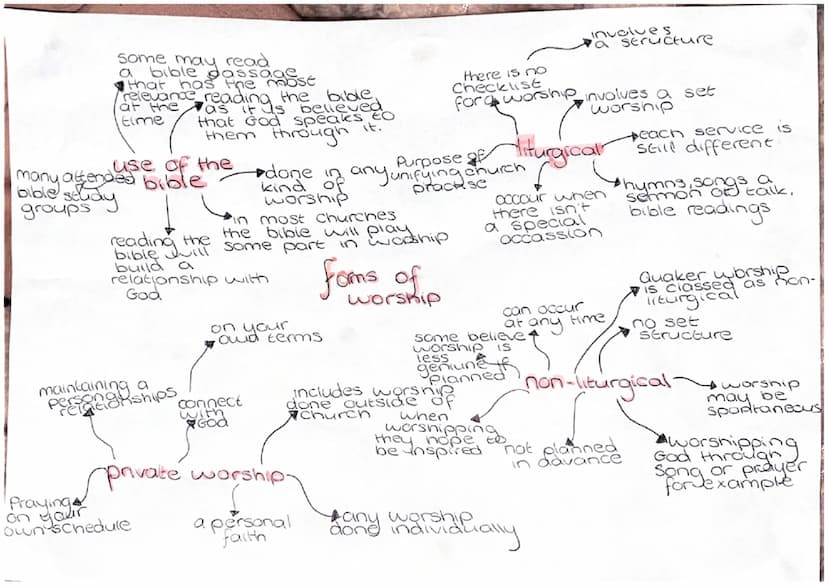 some may read
a bible passage
that has the most
relevance
at the
time
reading the bible,
as it is believed
that God speaks to
them through it.
use of the
bible
many attended
bible study
groups
done in any
kind of
worship
in most churches
the bible will play
some part in worship
reading the
bible will
build a
relationship with
God
involves
a structure
there is no
checklist
for a worship
involves a set
worship
liturgical
each service is
still different
Purpose of
unifying church
procise
occur when
there isn't
a special
occassion
hymns, songs a
sermon or talk,
bible readings
foms of
worship
Quaker worship
is classed as non-
liturgical
can occur
at any time
no set
structure
some believe
worship is
less
geniune if
planned
non-liturgical
worship
may be
spontaneous
when
worshipping
they hope to
be inspired
not planned
in advance
worshipping
God through
song or prayer
for example
on your
own terms
maintaining a
personal
relationships
connect
with
God
includes worship
done outside of
church
private worship
Praying
on your
own schedule
a personal
faith
any worship
done individually